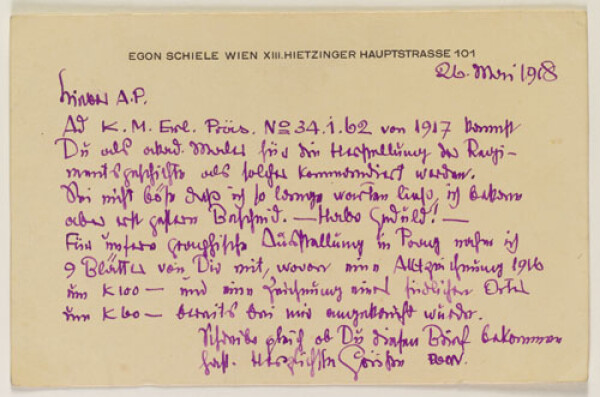 EGON SCHIELE WIEN XIII. HIETZINGER HAUPTSTRASSE 101
26. Mai 1918
Lieber A.P.
Ad K. M. Erl. Präs. No 34.1.62 von 1917 kannst
Du als akad. Maler für die Herstellung der Regi-
mentsgeschichte als solcher kommandiert werden.
Sei nicht böse daß ich so lange warten ließ, ich bekam
aber erst gestern Bescheid. — Habe Geduld! —
Für unsere graphische Ausstellung in Prag nahm ich
9 Blätter von Dir mit, wovon eine Aktzeichnung 1916
um K 100 — und eine Zeichnung eines südlichen Ortes
um K 60 — bereits bei mir angekauft wurde.
Schreibe gleich ob Du diesen Brief bekommen
hast. Herzlichste Grüße